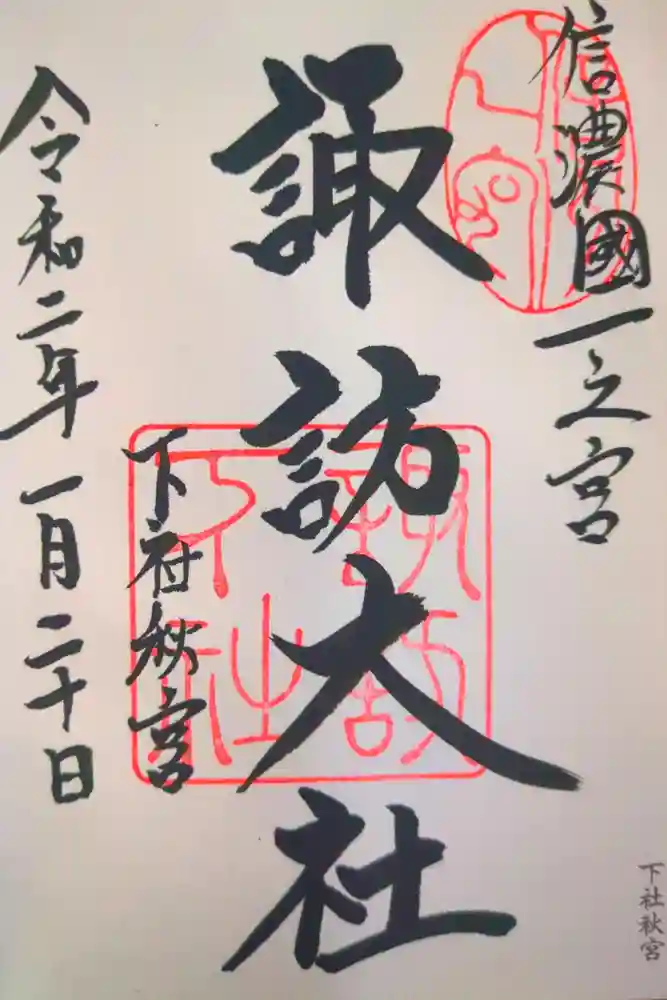 信濃國一之宮
諏訪大社
下社秋宮
令和二年一月二十日
下社秋宮